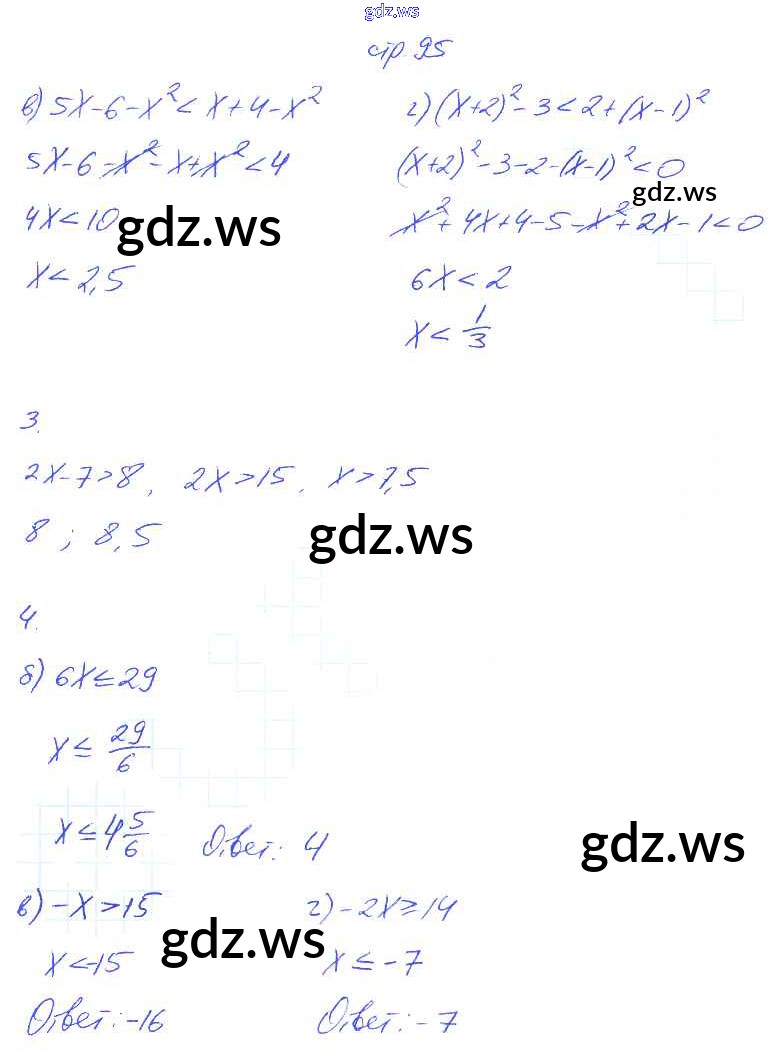 gdz.ws
стр. 95
в) 5x-6-x² < x+4-x²
5x-6-x²-x+x² < 4
4x < 10
x < 2,5
г) (x+2)² - 3 < 2 + (x-1)²
(x+2)² - 3 - 2 - (x-1)² < 0
x² + 4x + 4 - 5 - x² + 2x - 1 < 0
6x < 2
x < 1/3
gdz.ws
gdz.ws
3.
2x-7>8, 2x>15, x>7,5
8 ; 8,5
gdz.ws
4.
б) 6x ≤ 29
x ≤ 29/6
x ≤ 4 5/6 Ответ: 4
gdz.ws
в) -x > 15
x < -15
Ответ: -16
г) -2x ≥ 14
x ≤ -7
Ответ: -7
gdz.ws